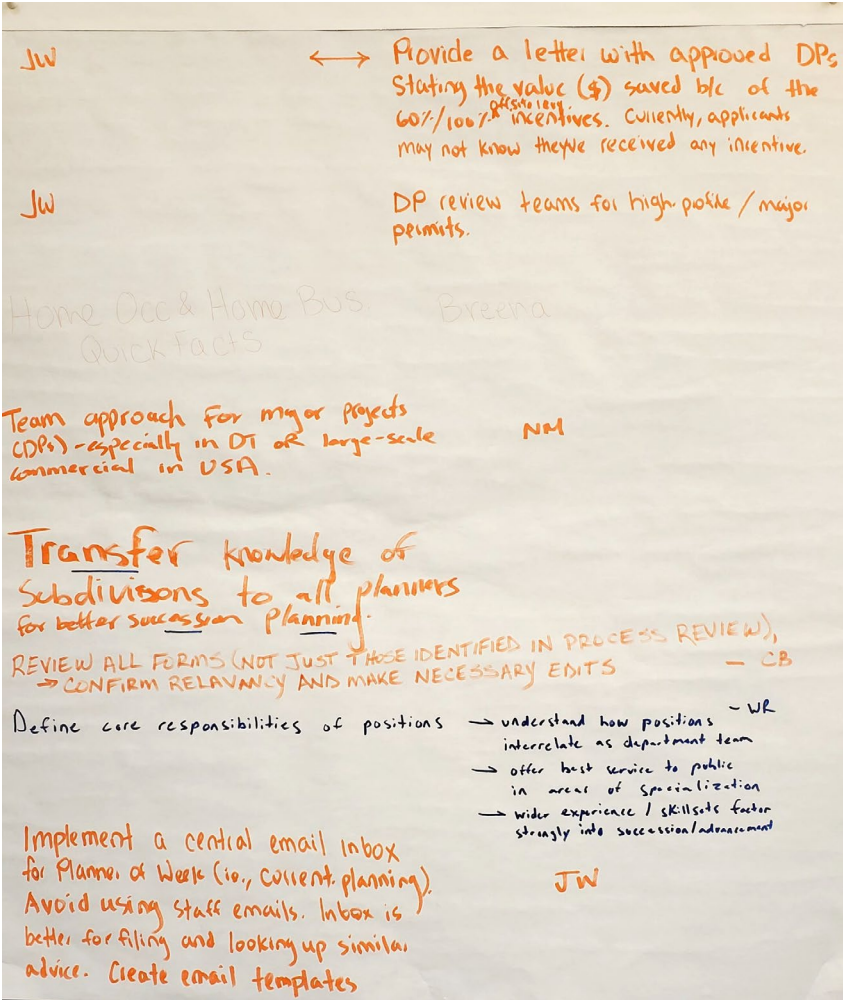 JW ↔ Provide a letter with approved DPs
Stating the value ($) saved b/c of the
60%/100% offsite levy incentives. Currently, applicants
may not know theyve received any incentive.
JW DP review teams for high-profile / major
permits.
Home Occ & Home Bus Breena
Quick Facts
Team approach for major projects
(DPs) - especially in DT OR large-scale
commercial in USA.
NM
Transfer knowledge of
Subdivisons to all planners
for better succession planning.
REVIEW ALL FORMS (NOT JUST THOSE IDENTIFIED IN PROCESS REVIEW),
→ CONFIRM RELAVANCY AND MAKE NECESSARY EDITS — CB
Define core responsibilities of positions
→ understand how positions - WR
interrelate as department team
→ offer best service to public
in areas of specialization
→ wider experience / skillsets factor
strongly into succession/advancement
Implement a central email inbox
for Planner of Week (ie., current planning).
Avoid using staff emails. Inbox is
better for filing and looking up similar
advice. Create email templates
JW